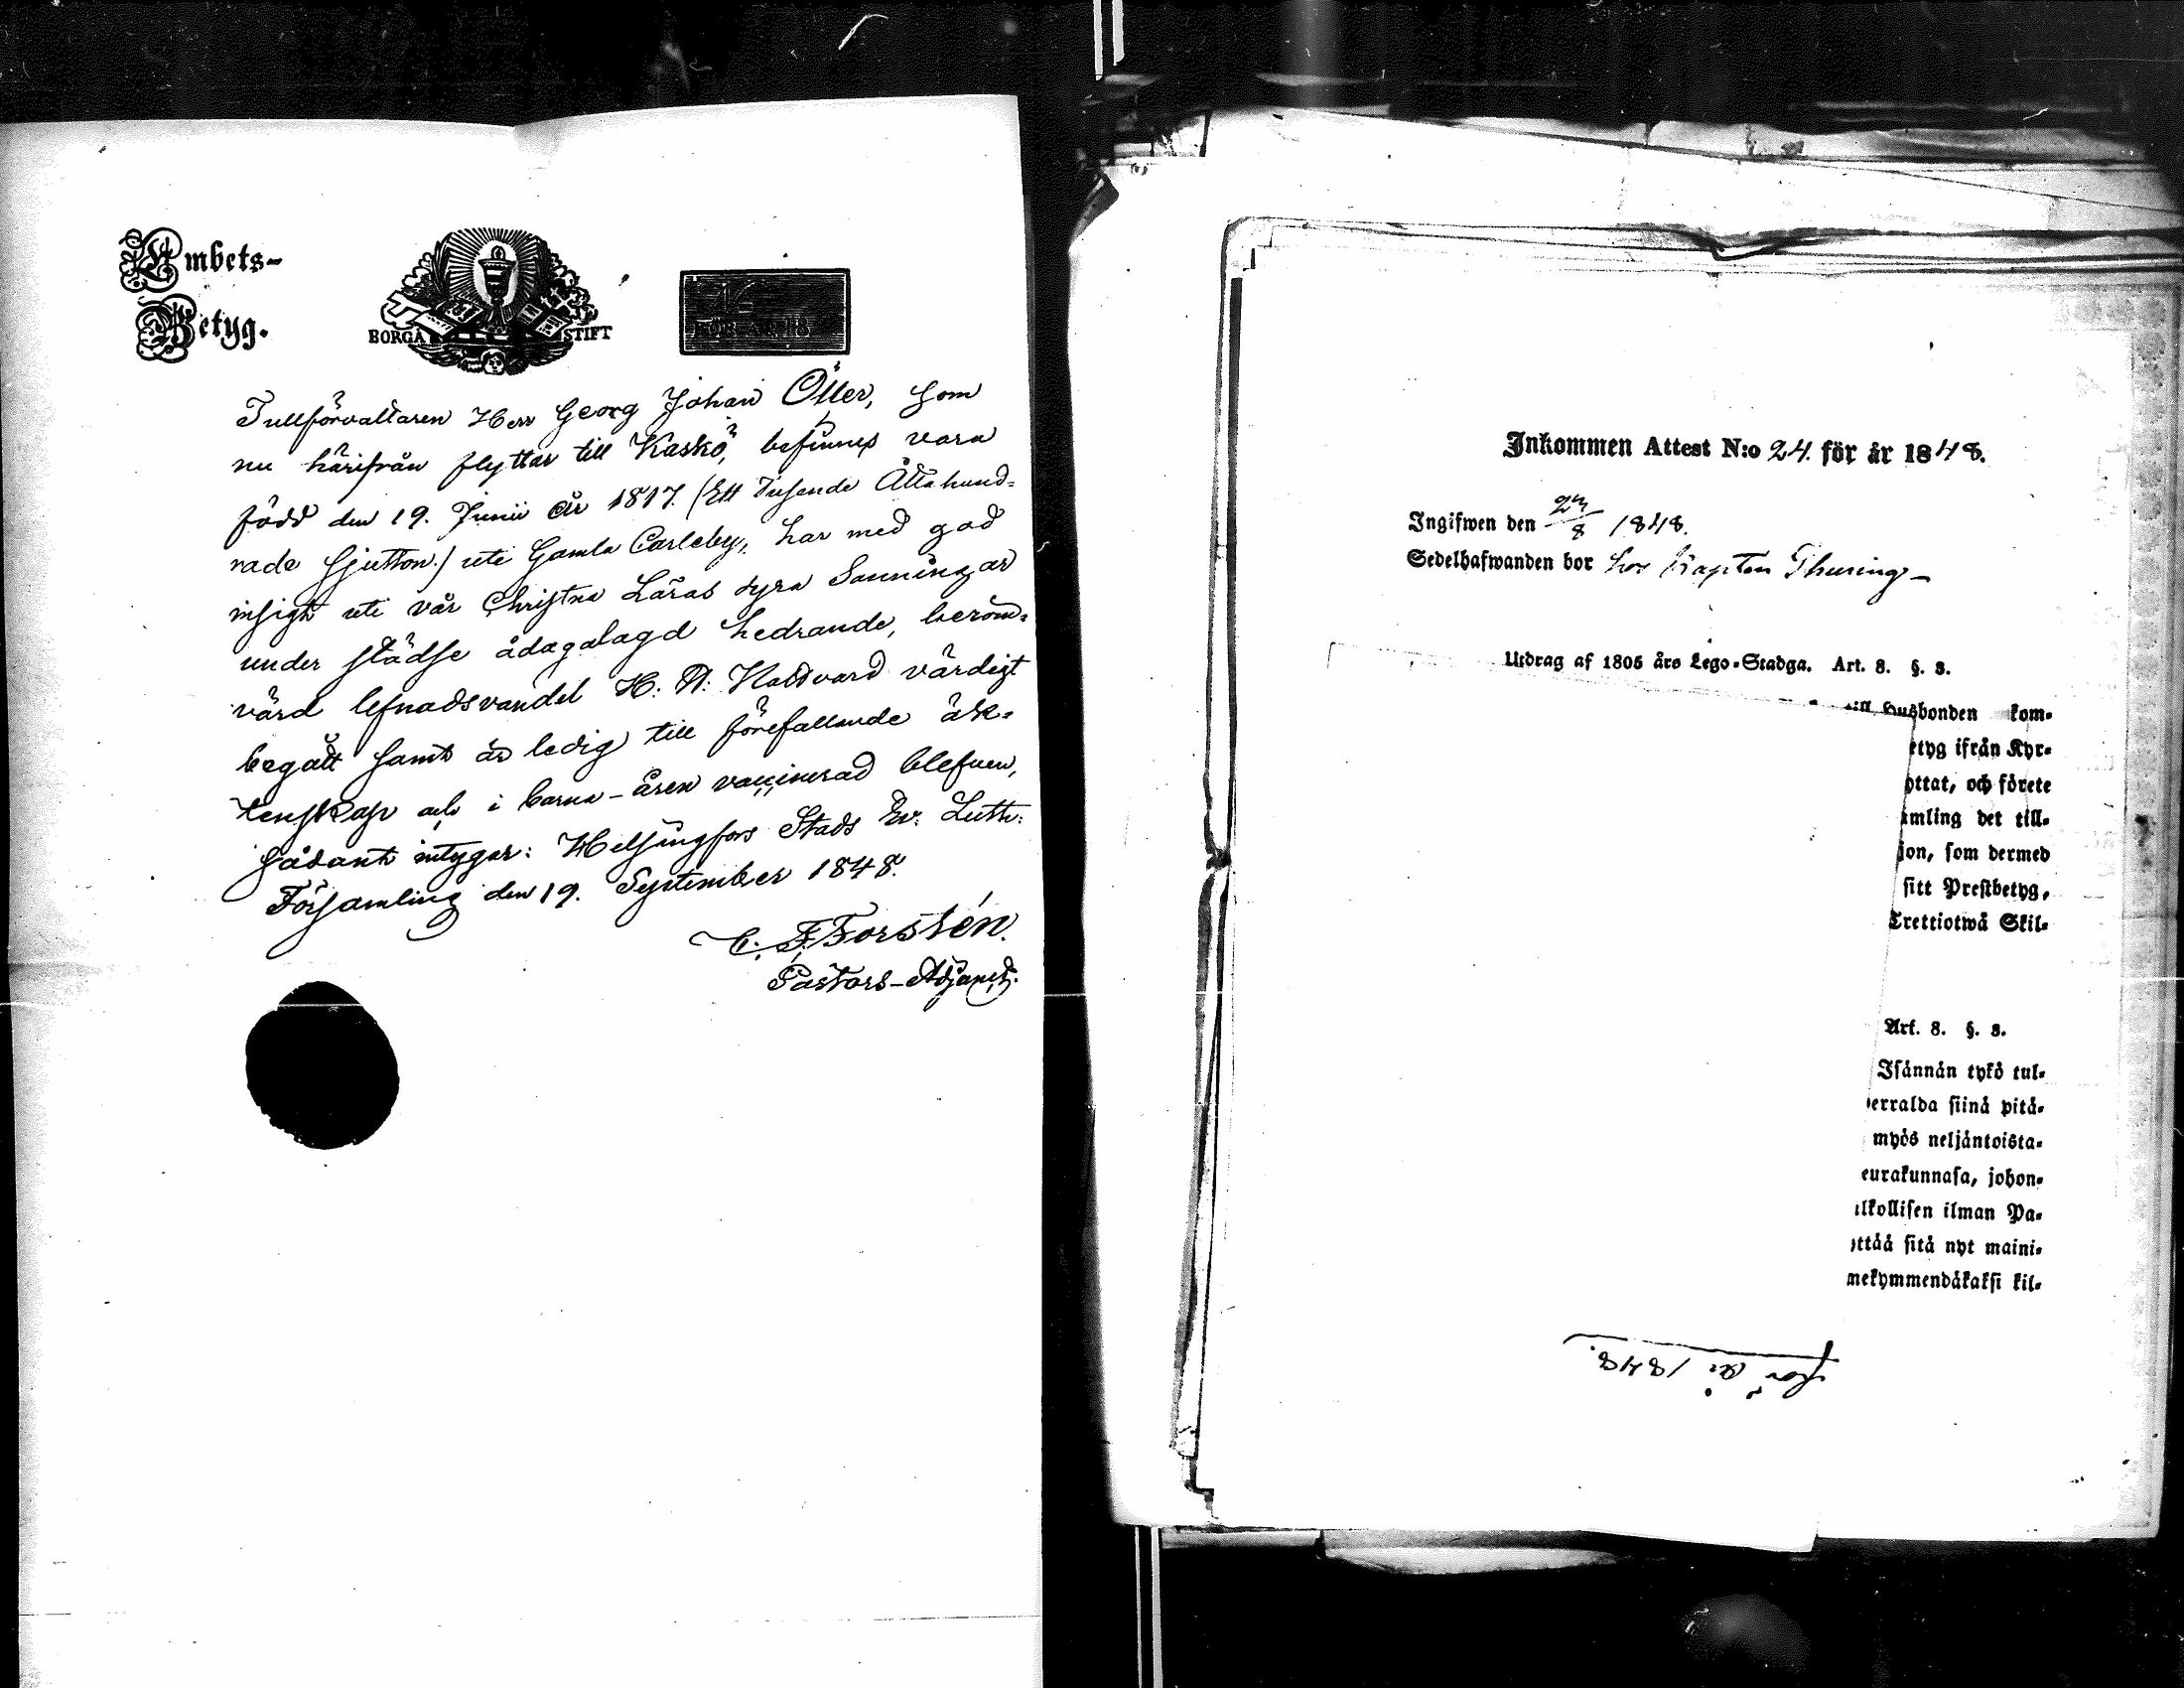 Embets-
Betyg.
BORGÅ STIFT
Tullförvaltaren Herr Georg Johan Öller, som
nu härifrån flyttar till Kaskö, befinnes vara
född den 19. Junii år 1817. (Ett Tusende Åttahund-
rade Sjutton.) uti Gamla Carleby, har med god
insigt uti vår Christna Läras dyra Sanningar
under städse ådagalagd hedrande, beröm-
värd lefnadsvandel H: N: Nattvard värdigt
begått samt är ledig till förefallande äk-
tenskap och i barna-åren vaccinerad blefven,
sådant intygar: Helsingfors Stads Ev: Luth:
Församling den 19. September 1848.
C. F. Forstén.
Pastors-Adjunct.
Inkommen Attest N:o 24. för år 1848.
Ingifwen den 1848.
Sedelhafwanden bor hos Kapten Thuring
Utdrag af 1805 års Lego-Stadga. Art. 8. §. 3.
till Husbonden kom-
etyg ifrån Kyr-
yttat, och förete
amling det till-
son, som dermed
sitt Prestbetyg,
Trettiotwå Skil-
Art. 8. §. 3.
Isännän tykö tul-
erralda siinä pitä-
myös neljäntoista-
eurakunnasa, johon-
ulkollisen ilman Pa-
yttää sitä nyt maini-
mekymmendäkaksi kil-
för år 1848.